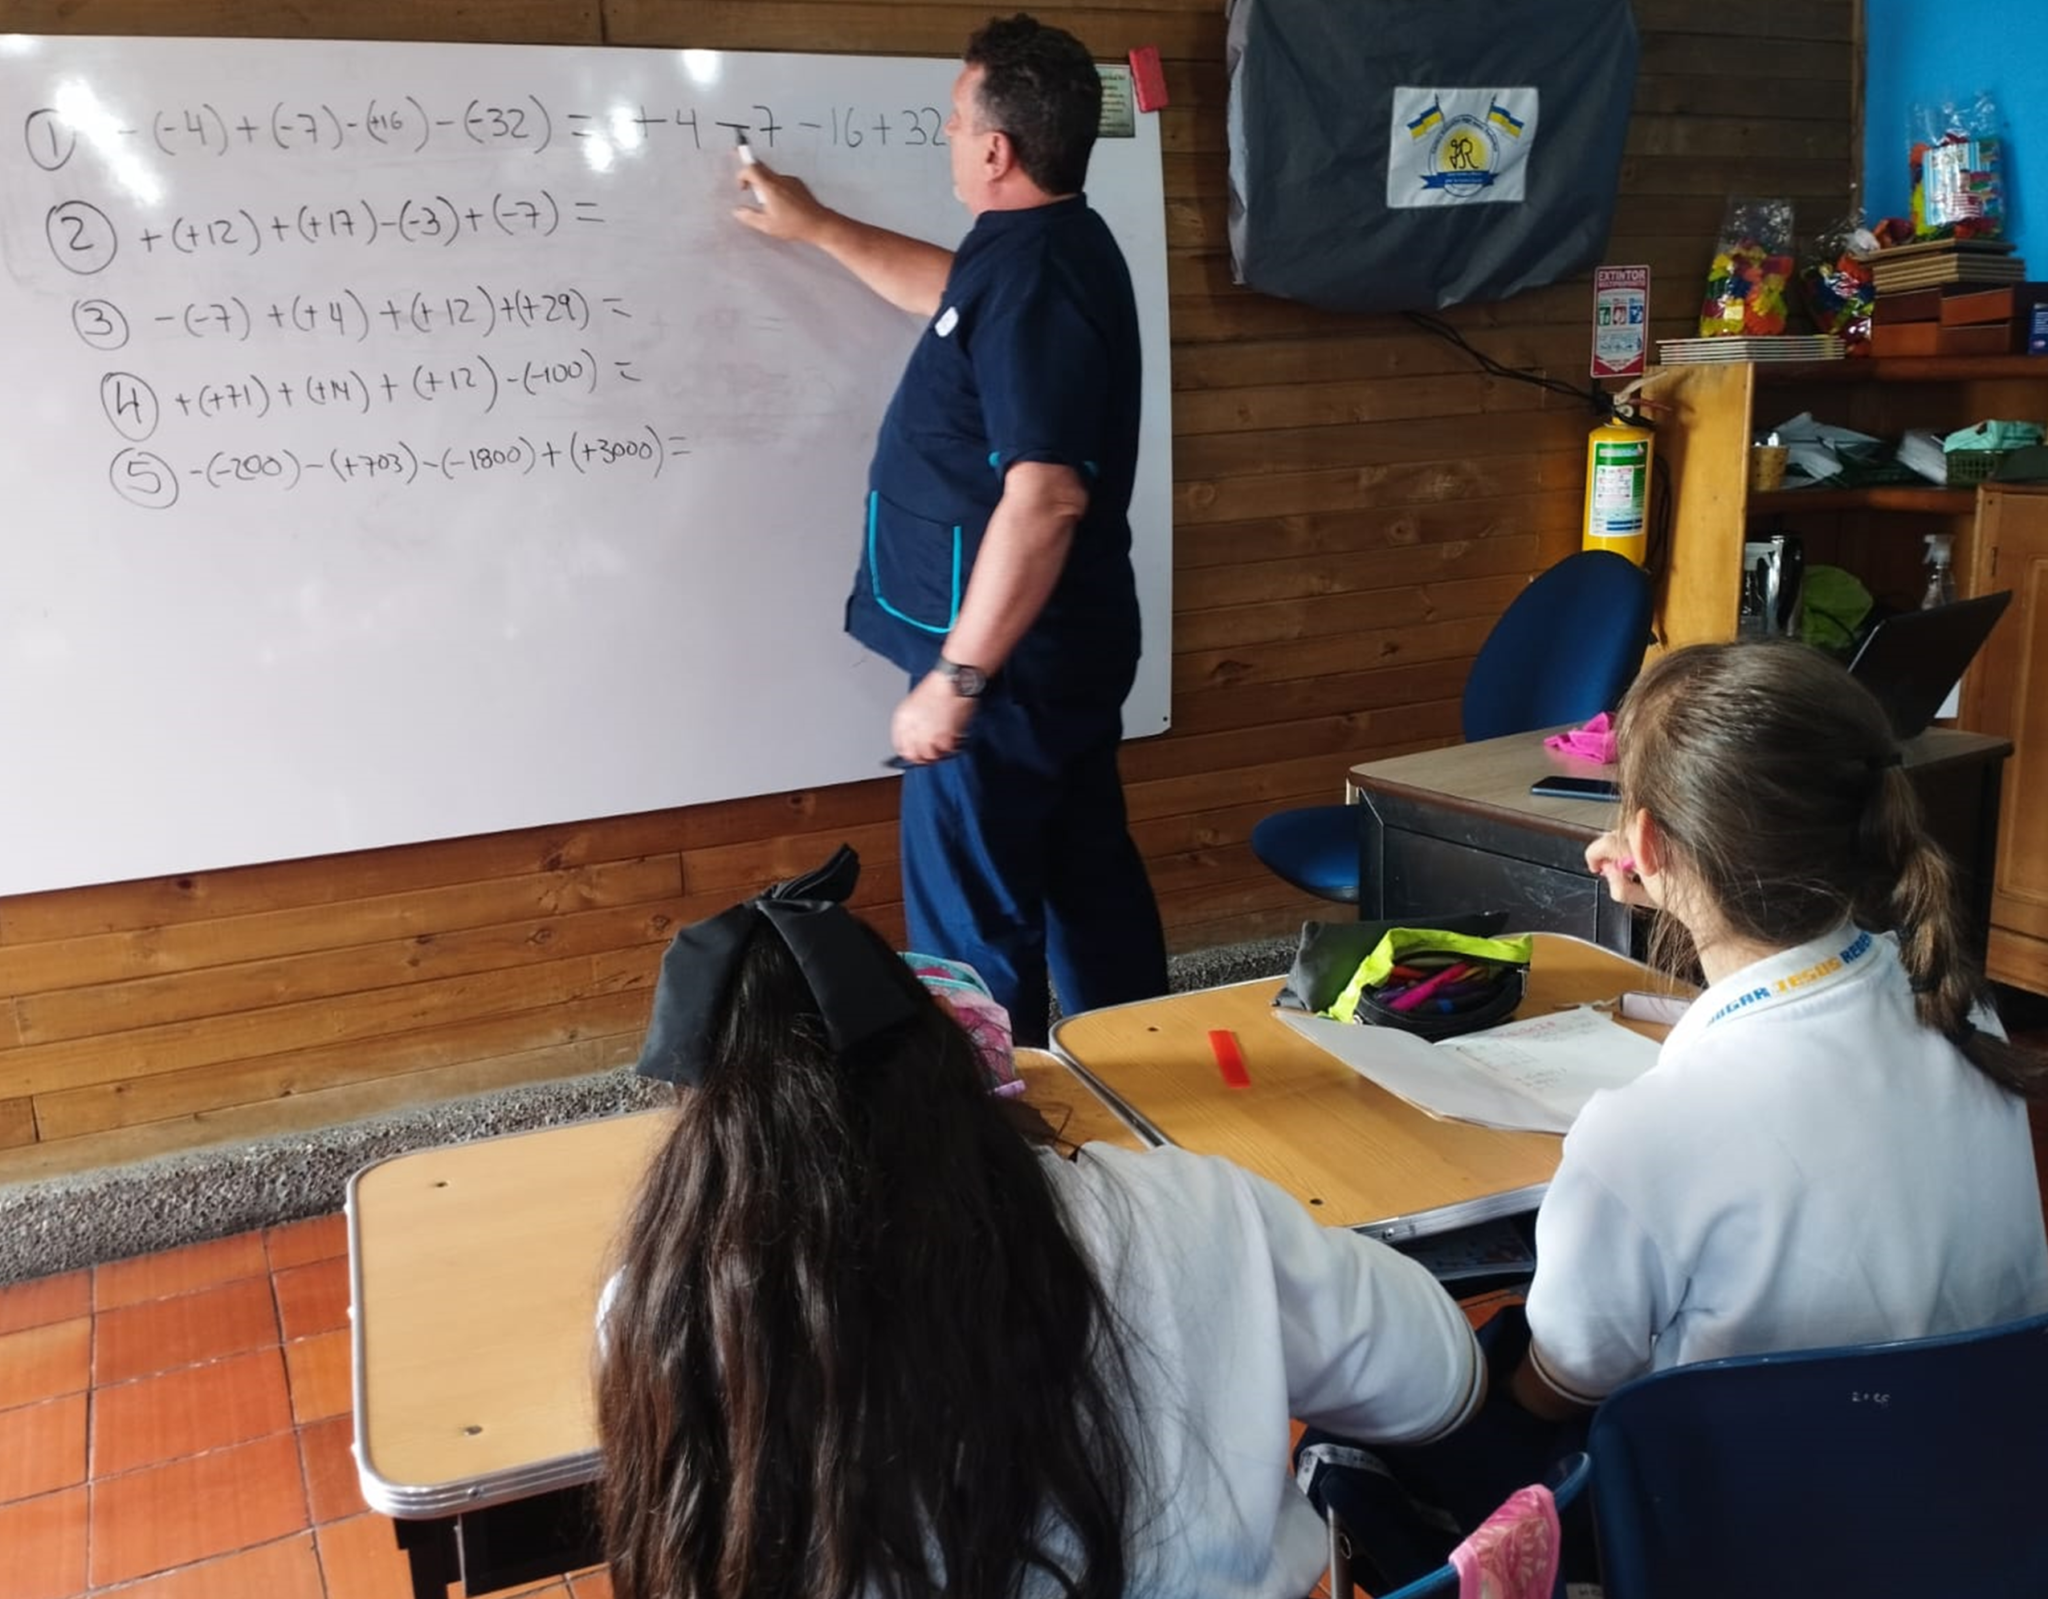 ① -(-4)+(-7)-(+16)-(-32) = +4-7-16+32
② +(+12)+(+17)-(-3)+(-7)=
③ -(-7)+(+4)+(+12)+(+29)=
④ +(+71)+(+14)+(+12)-(-100)=
⑤ -(-200)-(+703)-(-1800)+(+3000)=
JR
EXTINTOR
HOGAR JESUS REDE